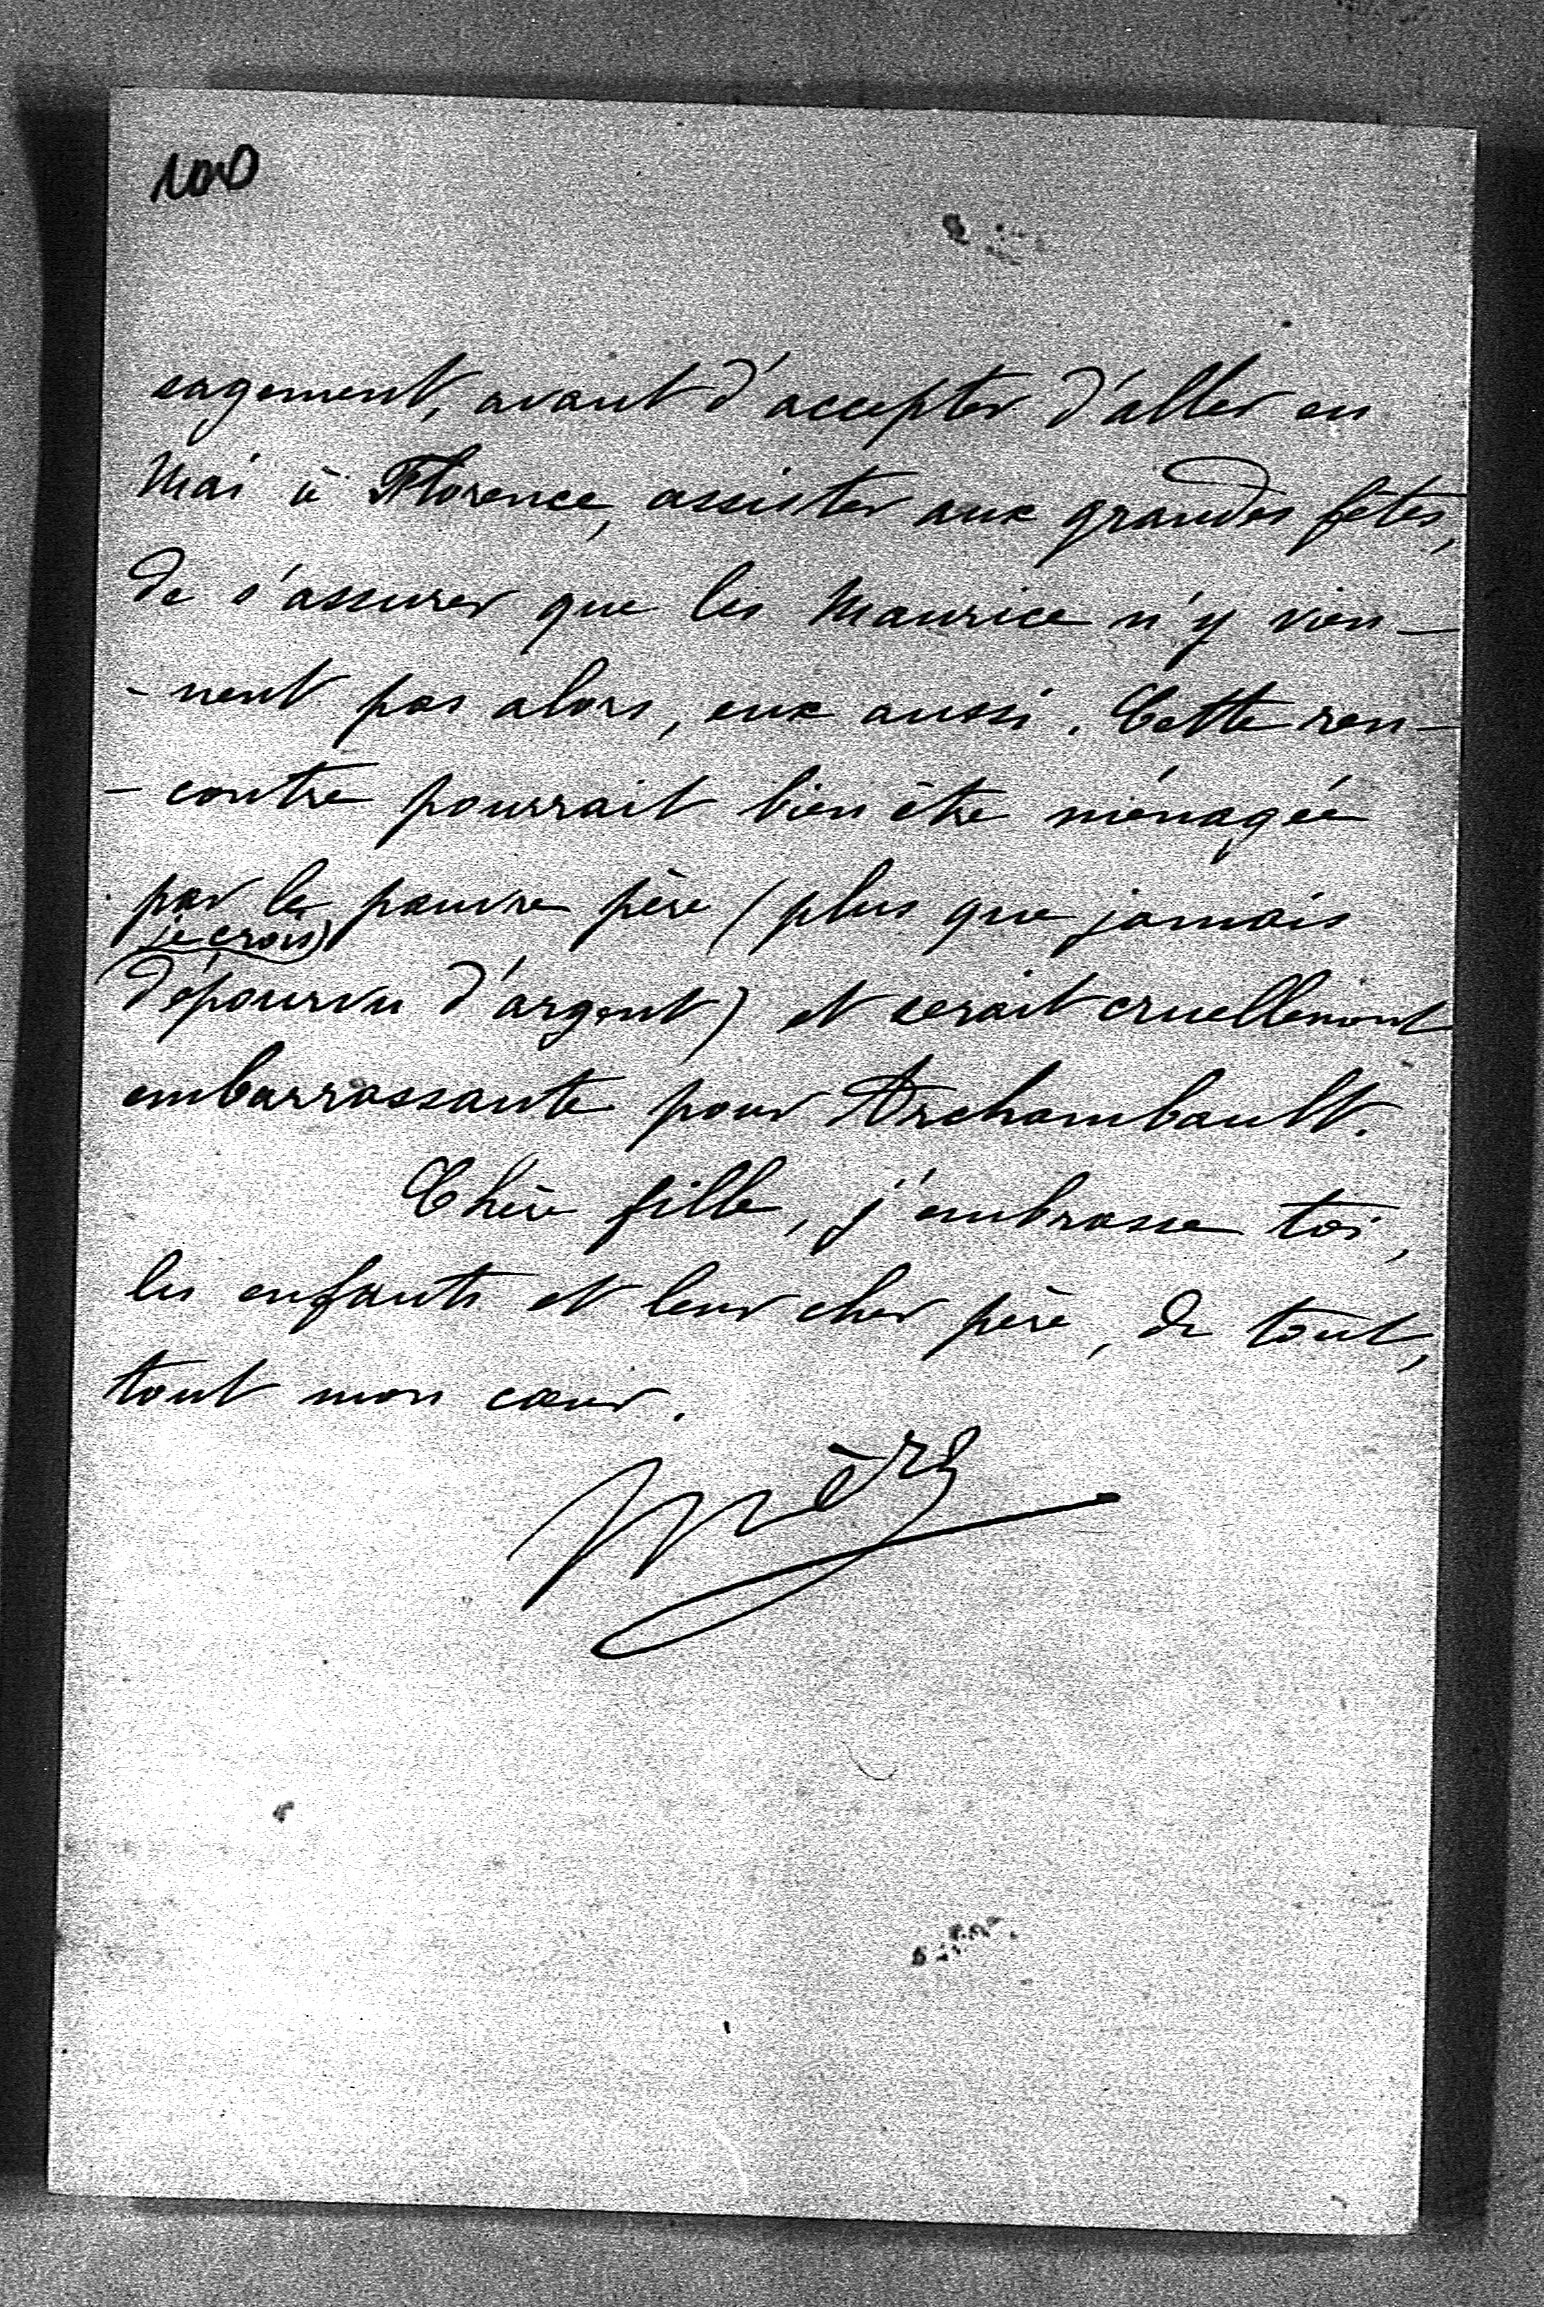 100
sagement, avant d'accepter d'aller en
Mai à Florence, assister aux grandes fêtes,
de s'assurer que les Maurice n'y vien-
-nent pas alors, eux aussi. Cette ren-
-contre pourrait bien être ménagée
par le pauvre père (plus que jamais
je crois)
dépourvu d'argent) et serait cruellement
embarrassante pour Archambault.
Chère fille, j'embrasse toi,
les enfants et leur cher père, de tout,
tout mon cœur.
Mère